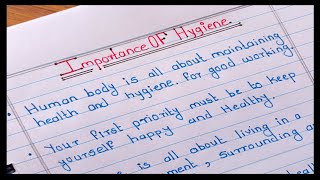 Importance Of Hygiene
• Human body is all about maintaining
health and hygiene. For good working.
• Your first priority must be to keep
yourself happy and Healthy.
is all about living in a
ment, surrounding a